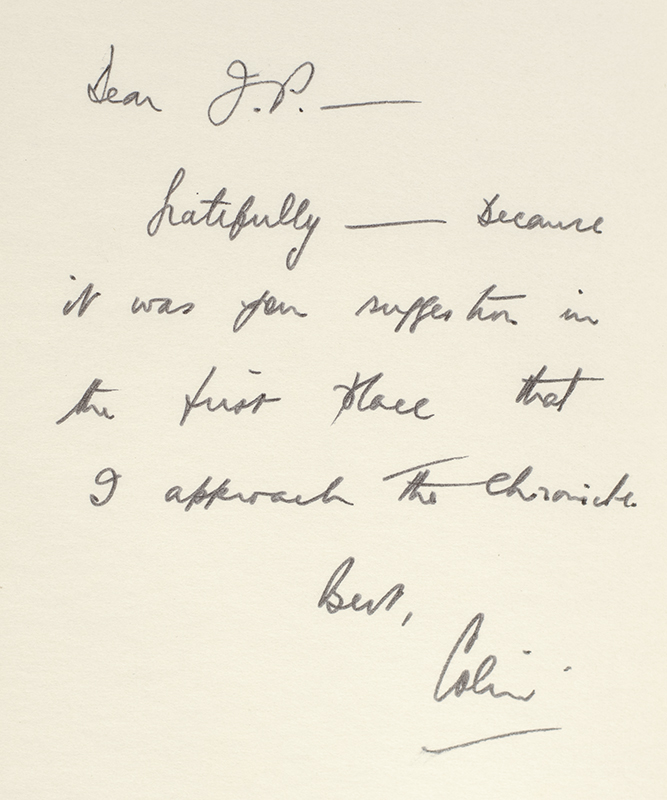 Dear J.P. —
Gratefully — because
it was your suggestion in
the first place that
I approach the Chronicle.
Best,
Colin